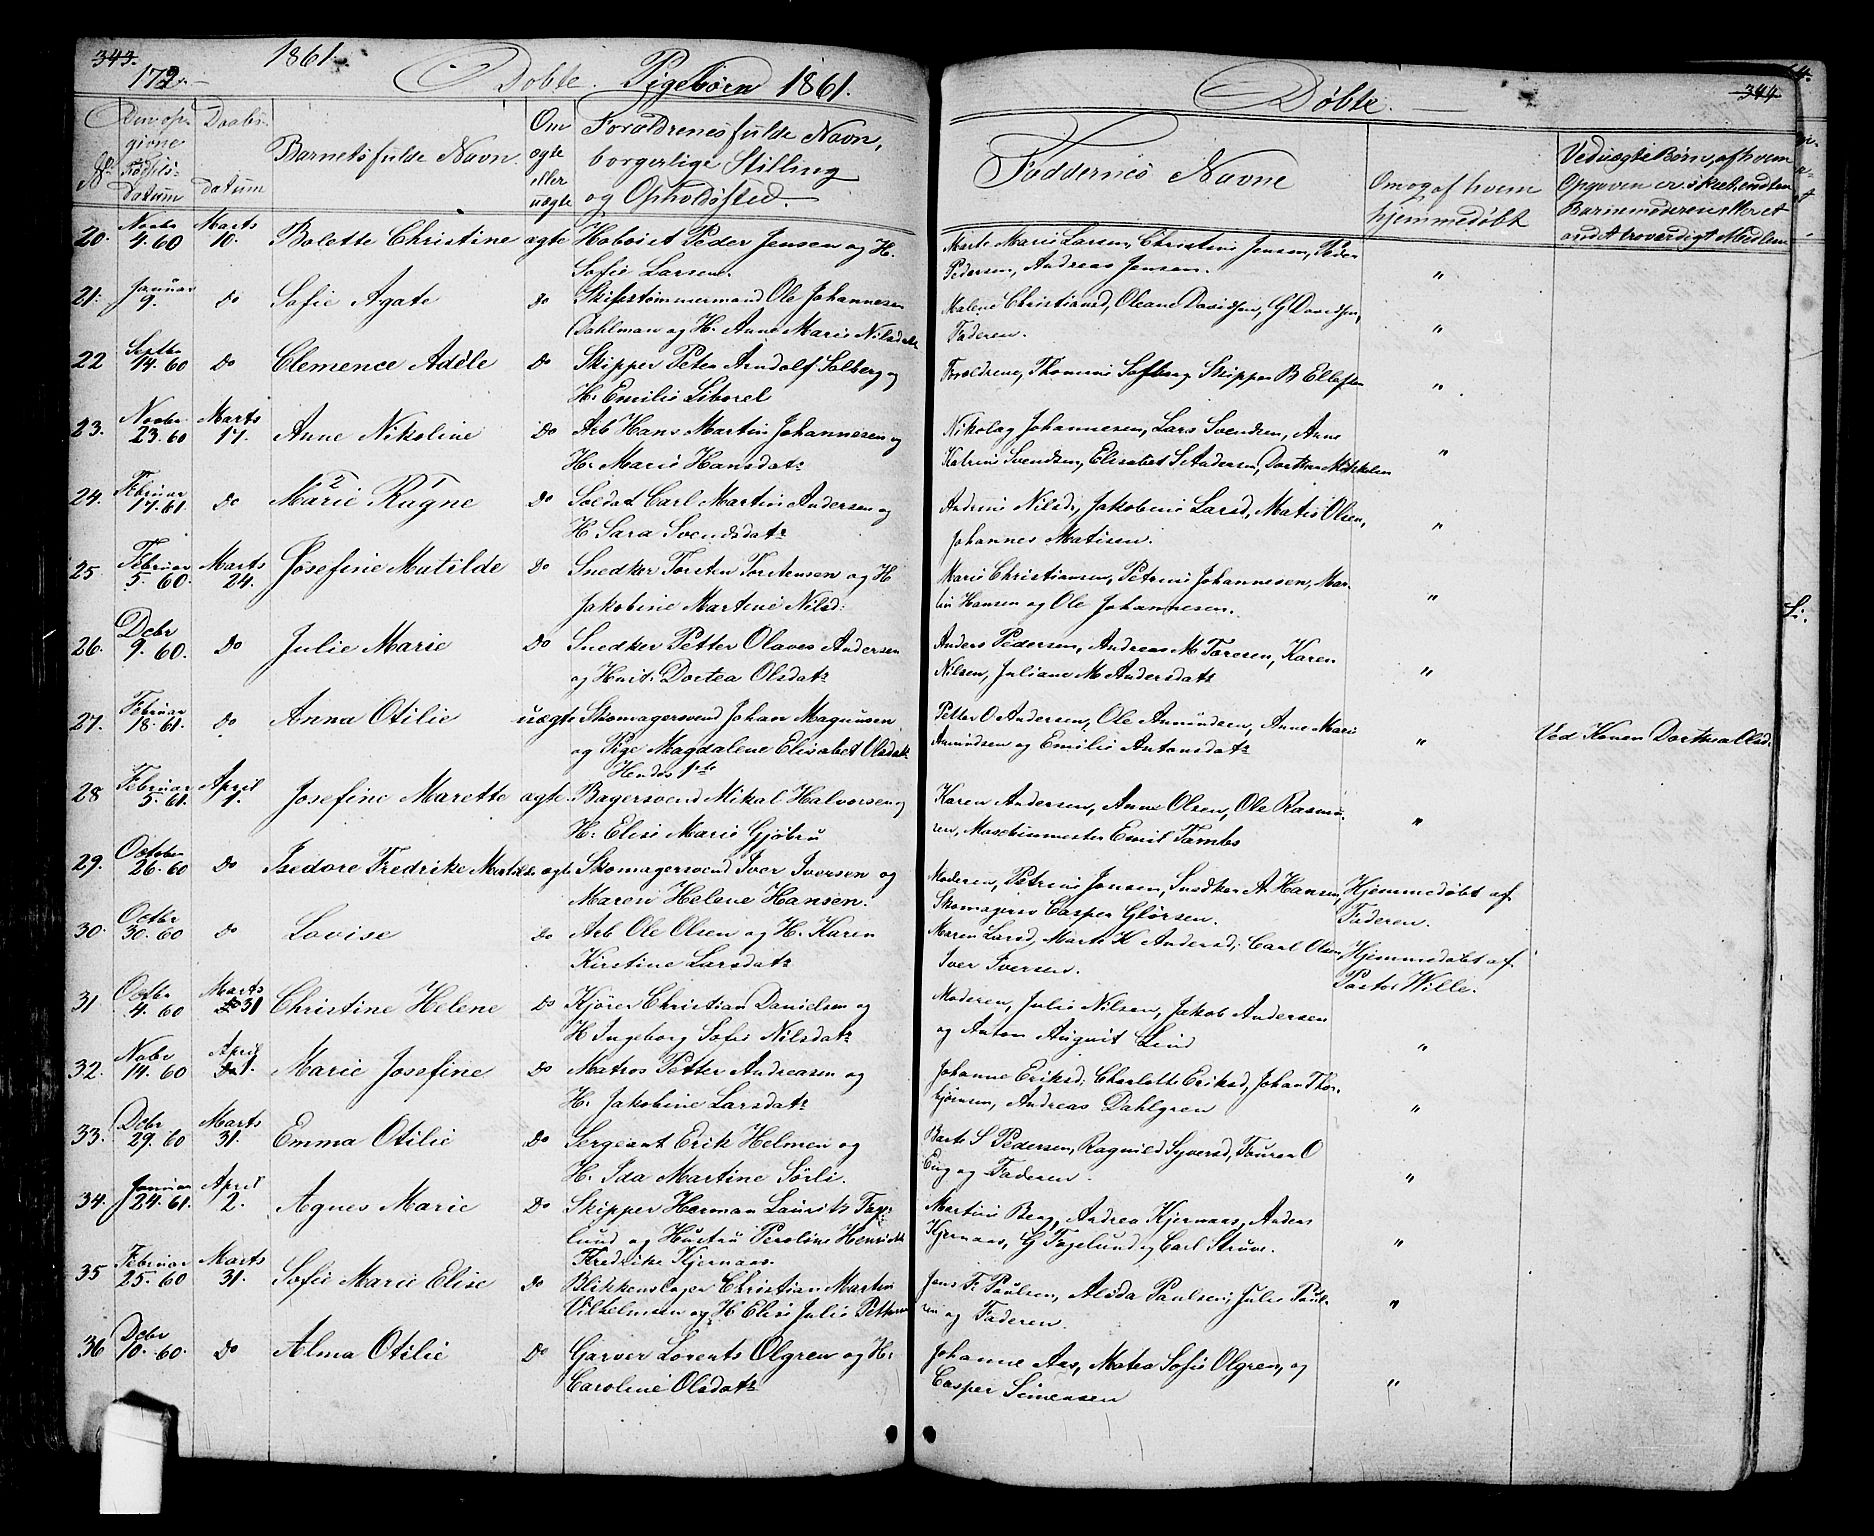 343.
172.
1861.
Døbte Pigebørn 1861.
No
Den opgivne Fødselsdatum
Daabsdatum
Barnets fulde Navn.
Om ægte eller uægte
Forældrenes fulde Navn, borgerlige Stilling og Opholdssted.
20. Novbr 4. 60 Marts 10. Bolette Christine ægte Hoboist Peder Jensen og H.
Sofie Larsen.
21. Januar 9. Do Sofie Agate Do Skibstømmermand Ole Johannesen
Dahlman og H. Anne Marie Nilsdatr
22 Septbr 14. 60 Do Clemence Adéle Do Skipper Peter Arndolf Solberg og
H. Emilie Liborel
23. Novbr 23. 60 Marts 17. Anne Nikoline Do Arb Hans Martin Johannesen og
H. Marie Hansdatr
24. Februar 17. 61. Do Marie 2 Ragne 1 Do Soldat Carl Martin Andersen og
H. Sara Svendsdatr
25. Februar 5. 60. Marts 24. Josefine Matilde Do Snedker Torsten Torstensen og H
Jakobine Martene Nilsd:
26. Debr 9. 60. Do Julie Marie Do Snedker Petter Olaves Andersen
og Hust: Dortea Olsdatr
27. Februar 18. 61. Do Anna Otilie uægte Skomagersvend Johan Magnusen
og Pige Magdalene Elisabet Olsdatr
Hendes 1ste
28 Februar 5. 61. April 1. Josefine Marette ægte Bagersvend Mikal Halvorsen og
H: Elise Marie Gjøbru
29. October 26. 60 Do Isedore Fredrike Matilde ægte Skomagersvend Iver Iversen og
Maren Helene Hansen.
30. Octbr 30. 60 Do Lovise Do Arb Ole Olsen og H. Karen
Kirstine Larsdatr
31 Octbr 4. 60 Marts 31 Christine Helene Do Kjører Christian Danielsen og
H. Ingeborg Sofie Nilsdatr
32. Nobr 14. 60 April 1. Marie Josefine Do Matros Petter Andreasen og
H. Jakobine Larsdatr
33. Debr 29. 60 Marts 31. Emma Otilie Do Sergeant Erik Helmen og
H. Ida Martine Sørli.
34. Januar 24. 61. April 2. Agnes Marie Do Skipper Herman Laurits Fagelund og Hustru Peroline Henrikke
Fredrike Kjernaas.
35 Februar 25. 60 Marts 31. Sofie Marie Elise Do Blikkenslager Christian Martin
Vilhelmsen og H. Elise Julie Pettersen
36 Debr 10. 60. Do Alma Otilie Do Garver Lorents Olgren og H:
Caroline Olsdatr
344
Døbte.
Faddernes Navne
Om og af hvem hjemmedøbt
Ved uægte Børn, af hvem Opgaven er skeet, endten Barnemoderen skeret andet troverdigt Medlem
Marte Marie Larsen, Christine Jensen, Peder
Pedersen, Andreas Jensen. "
Malene Christiansd, Oleane Davidsen, G Davidsen,
Faderen. "
Forældrene, Thomine Solberg, Skipper B Ellefsen "
Nikolaj Johannesen, Lars Svendsen, Anne
Katrine Svendsen, Elisabet S Andersen, Dorthea Mikkelsen "
Andrine Nilsd, Jakobine Larsd, Matis Olsen,
Johannes Matisen. "
Marie Christiansen, Petrine Johannesen, Martin Hansen og Ole Johannesen. "
Anders Pedersen, Andreas M Toresen, Karen
Nilsen, Juliane M Andersdatr "
Petter O Andersen, Ole Amundsen, Anne Marie
Amundsen og Emilie Antonsdatr " Ved Konen Dorthea Olsd.
Karen Andersen, Anne Olsen, Ole Rasmussen, Maschinmester Emil Tambs "
Moderen, Petrine Jensen, Snedker A. Hansen, Hjemmedøbt af
Skomagersv Casper Glørsen. Faderen.
Maren Larsd, Marte K Andersd; Carl Olsen, Hjemmedøbt af
Iver Iversen. Pastor Wille.
Moderen, Julie Nilsen, Jakob Andersen
og Anton August Lind "
Johanne Eriksd; Charlotte Eriksd, Johan Thorbjørnsen, Andreas Dahlgren "
Barte S Pedersen, Ragnild Syversd, Fouren O
Eng og Faderen. "
Martine Berg, Andrea Kjernaas, Anders
Kjernaas, G Fagelund og Carl Struve. "
Jens F. Paulsen, Alida Paulsen, Julie Paulsen og Faderen. "
Johanne Aas, Matea Sofie Olgren, og
Casper Simensen "